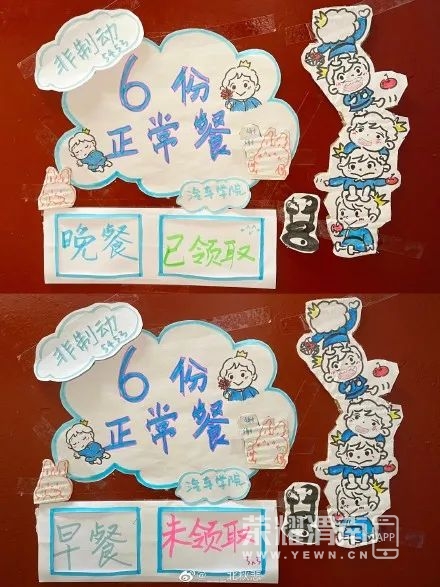 非制动
5453
6份
正常餐
汽车学院
晚餐
已领取
非制动
5453
6份
正常餐
汽车学院
早餐
未领取
荣耀渭南
APP
WWW.YEWN.CN